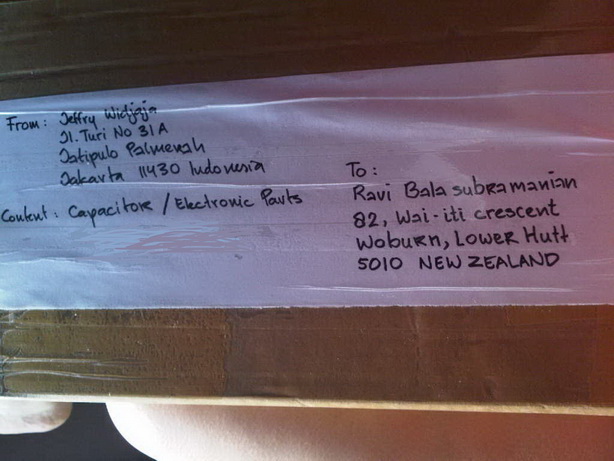 From: Jeffry Widjaja
Jl. Turi No 31A
Jatipulo Palmerah
Jakarta 11430 Indonesia
Content: Capacitors / Electronic Parts
To:
Ravi Bala subramanian
82, Wai-iti crescent
Woburn, Lower Hutt
5010 NEW ZEALAND